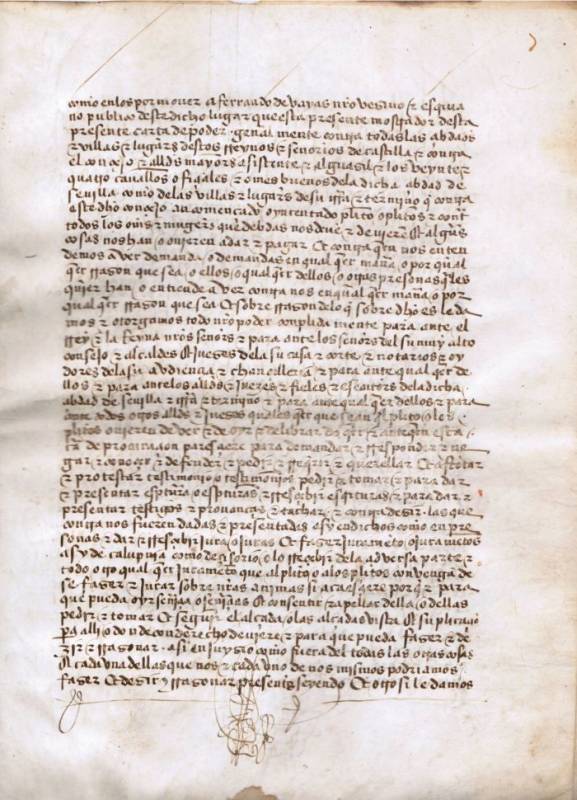 como en los por mover a ferrando de vayas nro vezino & escriua
no publico deste dicho lugar questa presente mostrador desta
presente carta de poder . gñal mente contra todas las abdades
& villas & lugars destos rreynos & señorios de castilla & contra
el conçejo & allds mayors asistente & alguasil & los veynte &
quatro cavallos ofiçiales & omes buenos dela dicha abdad de
seuilla como delas villas & lugars de su trra & termino q̃ contra
este dho conçejo an començado o yntentado plito o plitos & contra
todos los oms & mugeres que debdas nos deuen & deuieren & algũs
cosas nos han o ouieren a dar & pagar Et contra qen nos enten
demos aver demanda o demandas en qual qer mañra o por qual
qer rrason que sea o ellos o qual qer dellos o otras presonas qles
quier han o entiende aver contra nos en qual qer mañra o por
qual qer rrason que sea Et sobre rrason delo q̃ sobre dho es le da
mos & otorgamos todo nro poder conplida mente para ante el
rrey & la rreyna nros señors & para ante los señors del su muy alto
consejo & alcaldes & jueses dela su casa & corte & notarios & oy
dores dela su avdiençia & chançelleria & para ante qual qer de
llos & para antelos allds & jueses & fieles & esecutors dela dicha
abdad de seuilla & trra & termino & para ante qual qer dellos & para
ante todos otros allds & jueses quales qer que sean q̃l plito o los
plitos ouieren de ver & de oyr & de librar do qer & ante qen esta
crta de procuraçion paresçiere para demandar & rresponder & ne
gar & conosçer & defender & pedir & rreqrir & querellar Et afrotar
& protestar testimonio o testimonios pedir & tomar & para dar
& presentar escptura o escpturas & rresçebir escrituras & para dar &
presentar testigos & prouanças & tachar & contradezir las que
contra nos fueren dadas & presentadas asy en dichos como en pre
sonas & dar & rresçebir jura o juras Et faser juramẽto o juramẽtos
asy de calupnia como deçisorio o lo rresçebir dela adversa parte &
todo otro qual qer juramẽto que al plito o alos plitos convenga de
se faser & jurar sobre nras animas si acaesçiere porq̃ & para
que pueda oyr sentẽçia o sentẽçias & consentir & apellar della o dellas
pedir & tomar Et seguir el alçada o las alçadas vista & suplicaçiõ
pa alli do onde con derecho deuiere & para que pueda faser & de
zir & rrasonar . asi en juyzio como fuera del todas las otras cosas
& cada vna dellas que nos & cada vno de nos mismos podriamos
faser Et desir & rrasonar presentes seyendo Et otrosi le damos